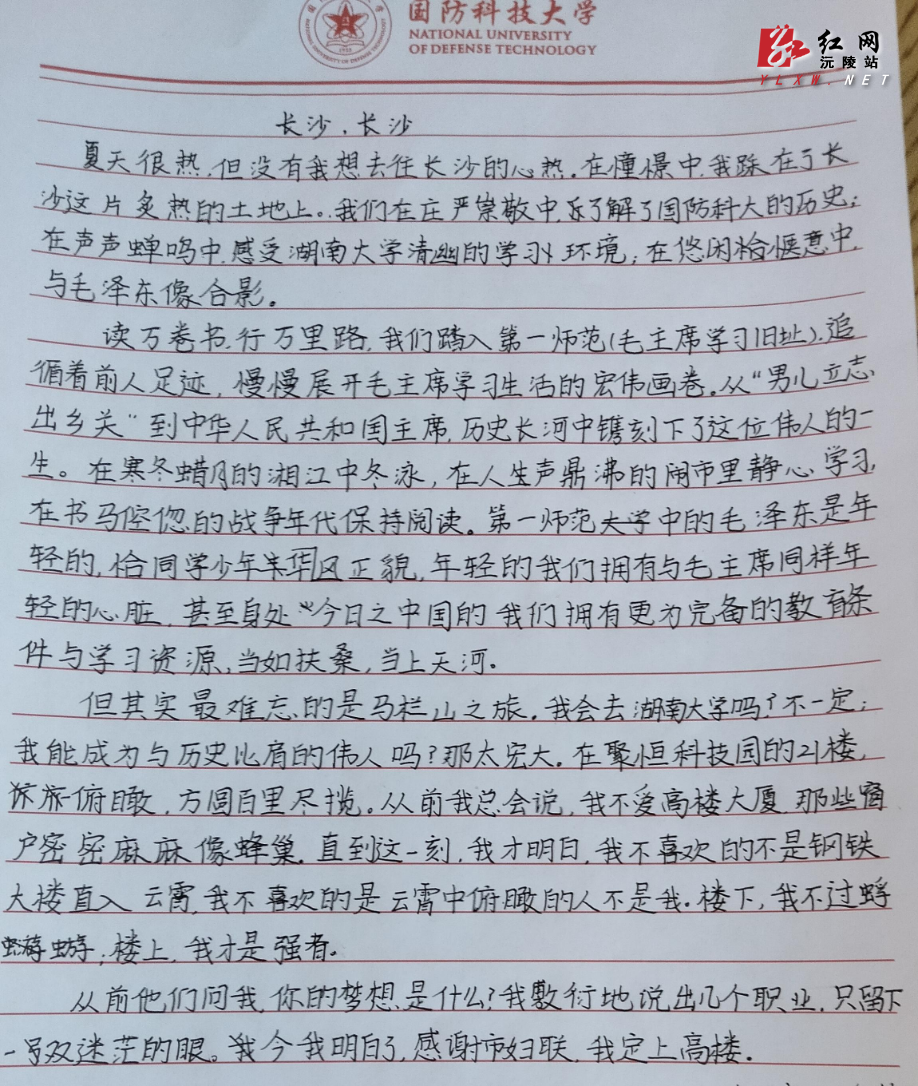 国防科技大学
NATIONAL UNIVERSITY
OF DEFENSE TECHNOLOGY
红网
沅陵站
YLXW.NET
长沙，长沙
夏天很热，但没有我想去往长沙的心热。在憧憬中，我踩在了长
沙这片炙热的土地上。我们在庄严崇敬中，了解了国防科大的历史；
在声声蝉鸣中，感受湖南大学清幽的学习环境；在悠闲恰惬意中，
与毛泽东像合影。
读万卷书，行万里路，我们踏入第一师范(毛主席学习旧址)，追
循着前人足迹，慢慢展开毛主席学习生活的宏伟画卷。从“男儿立志
出乡关”到中华人民共和国主席，历史长河中镌刻下了这位伟人的一
生。在寒冬蜡月的湘江中冬泳，在人生声鼎沸的闹市里静心学习，
在书马倥偬的战争年代保持阅读。第一师范大学中的毛泽东是年
轻的，恰同学少年朱华风正貌，年轻的我们拥有与毛主席同样年
轻的心脏，甚至身处“今日之中国的我们拥有更为完备的教育条
件与学习资源，当如扶桑，当上天河。
但其实最难忘的是马栏山之旅。我会去湖南大学吗？不一定；
我能成为与历史比肩的伟人吗？那太宏大。在聚恒科技园的21楼，
俯瞰，方圆百里尽揽。从前我总会说，我不爱高楼大厦，那些窗
户密密麻麻像蜂巢。直到这一刻，我才明白，我不喜欢的不是钢铁
大楼直入云霄，我不喜欢的是云霄中俯瞰的人不是我。楼下，我不过蜉
蝣；楼上，我才是强者。
从前他们问我，你的梦想是什么？我敷衍地说出几个职业，只留下
一双迷茫的眼。我今我明白了，感谢市妇联，我定上高楼。